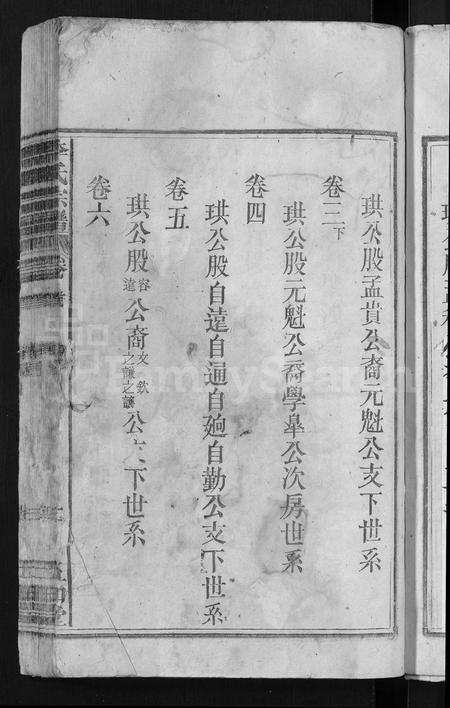 珙公股孟貴公裔元魁公支下世系
卷三下
珙公股元魁公裔學皐公次房世系
卷四
珙公股自遠自通自廻自勤公支下世系
卷五
珙公股容遠公裔文欽之謙之讓公支下世系
卷六
氏宗譜 卷首
FamilySearch